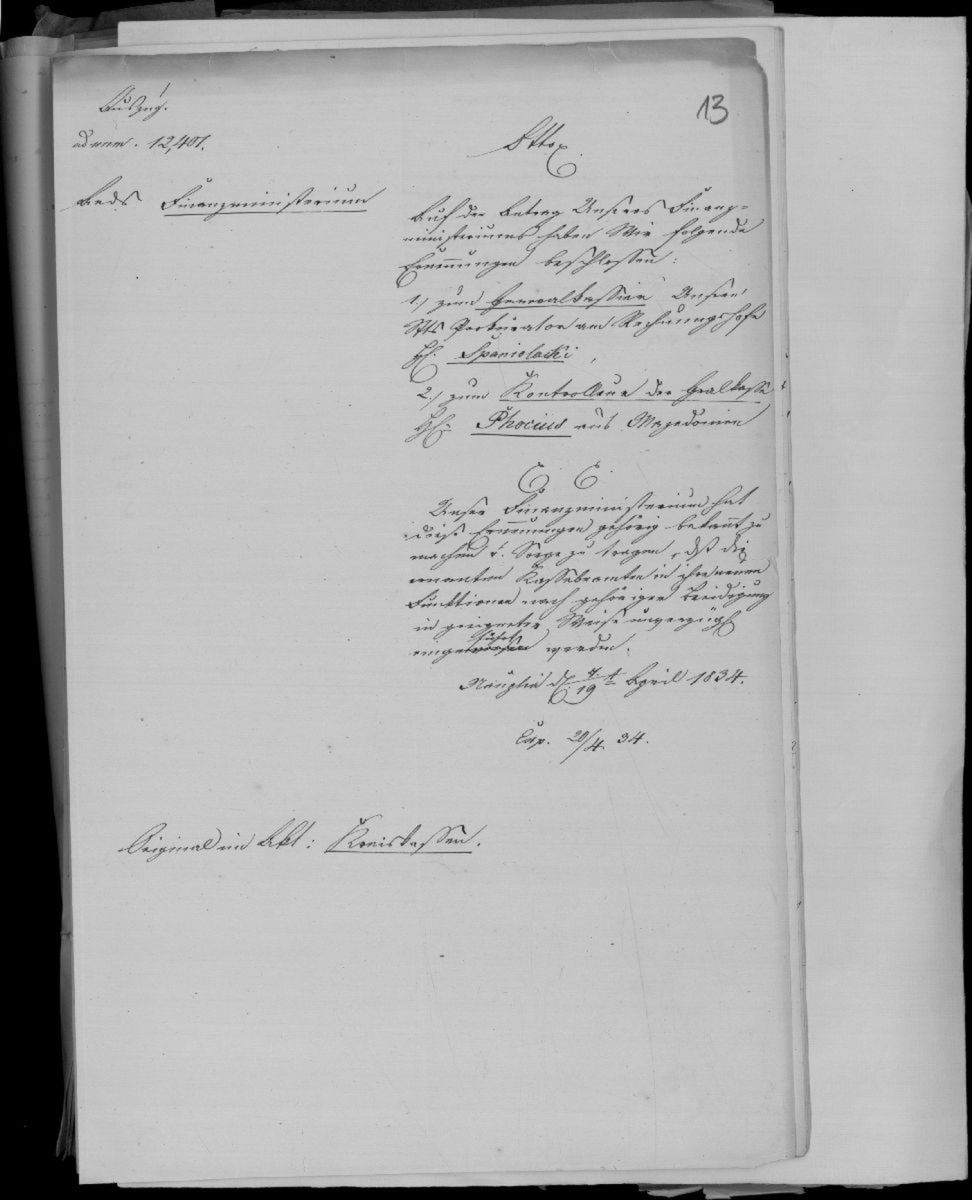 Auszug.
ad num. 12,401.
13
Otto
Finanzministerium
Auf den Antrag Unseres Finanz-
ministeriums haben Wir folgende
Ernennungen beschlossen:
1.) zum Generalkassier Unseren
Sts Prokurator am Rechnungshofe
H. Spaniolacki,
2.) zum Kontrolleur der Gralkasse
H. Phocius aus Mazedonien
Unser Finanzministerium hat
diese Ernennungen gehörig bekannt zu
machen u. Sorge zu tragen, daß die
ernannten Kassebeamten in ihre neuen
Funktionen nach gehöriger Beeidigung
in geeigneter Weise unverzügl
eingeführt werden.
Nauplia d. 7/19 t April 1834.
Exp. 20/4 34.
Original im Akt: Kreiskassen.